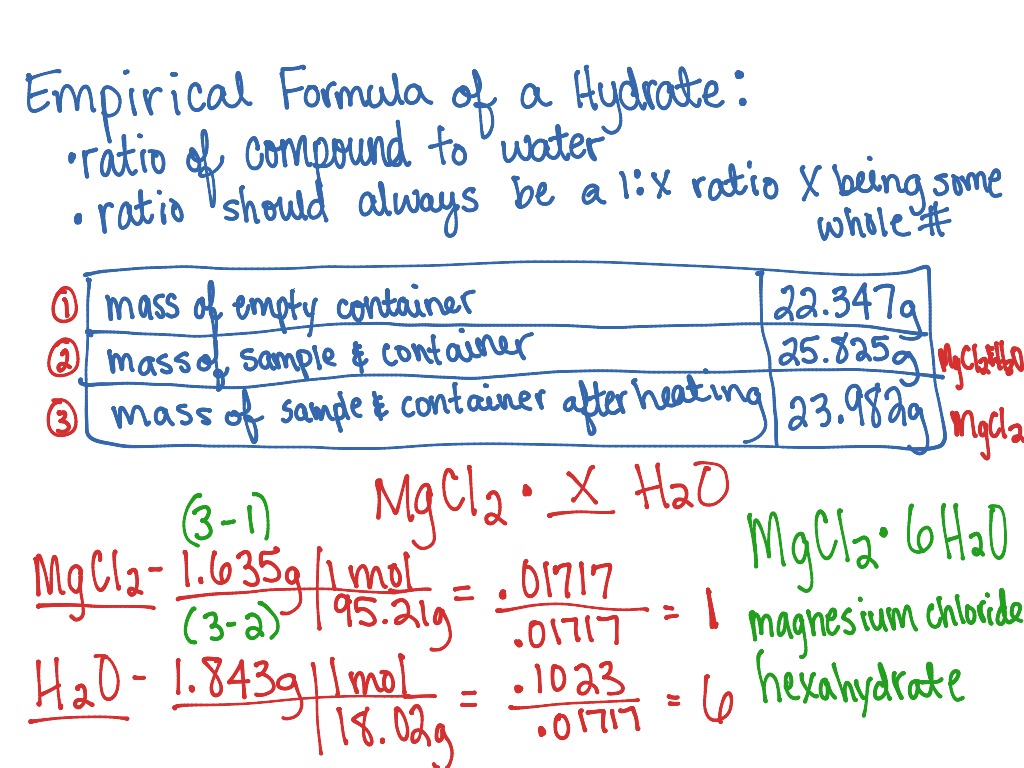 Empirical Formula of a Hydrate:
• ratio of compound to water
• ratio should always be a 1:X ratio X being some
whole #
① mass of empty container 22.347g
② mass of sample & container 25.825g
③ mass of sample & container after heating 23.982g MgCl2
MgCl2 • X H2O
(3-1)
MgCl2 - 1.635g | 1 mol = .01717 = 1
95.21g .01717
(3-2)
H2O - 1.843g | 1 mol = .1023 = 6
18.02g .01717
MgCl2 • 6H2O
magnesium chloride
hexahydrate